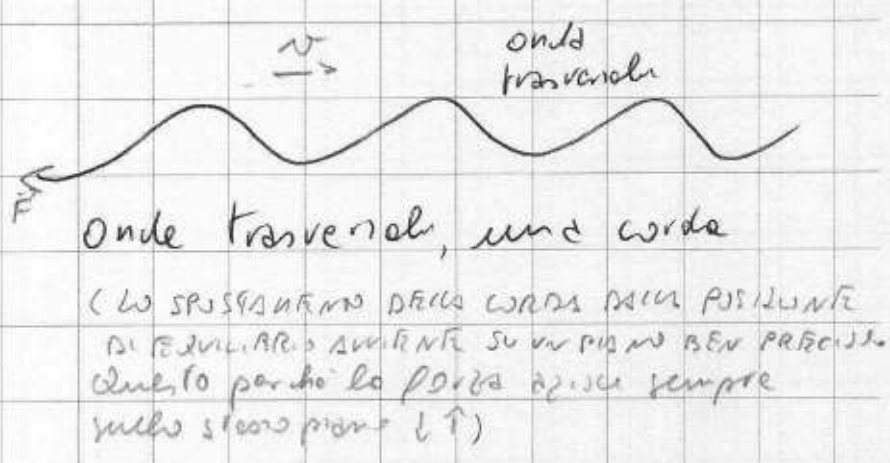 v
onda
trasversale
F
Onde trasversali, una corda
(LO SPOSTAMENTO DELLA CORDA DALLA POSIZIONE
DI EQUILIBRIO AVVIENE SU UN PIANO BEN PRECISO.
Questo perché la FORZA agisce sempre
sullo stesso piano ↓↑)